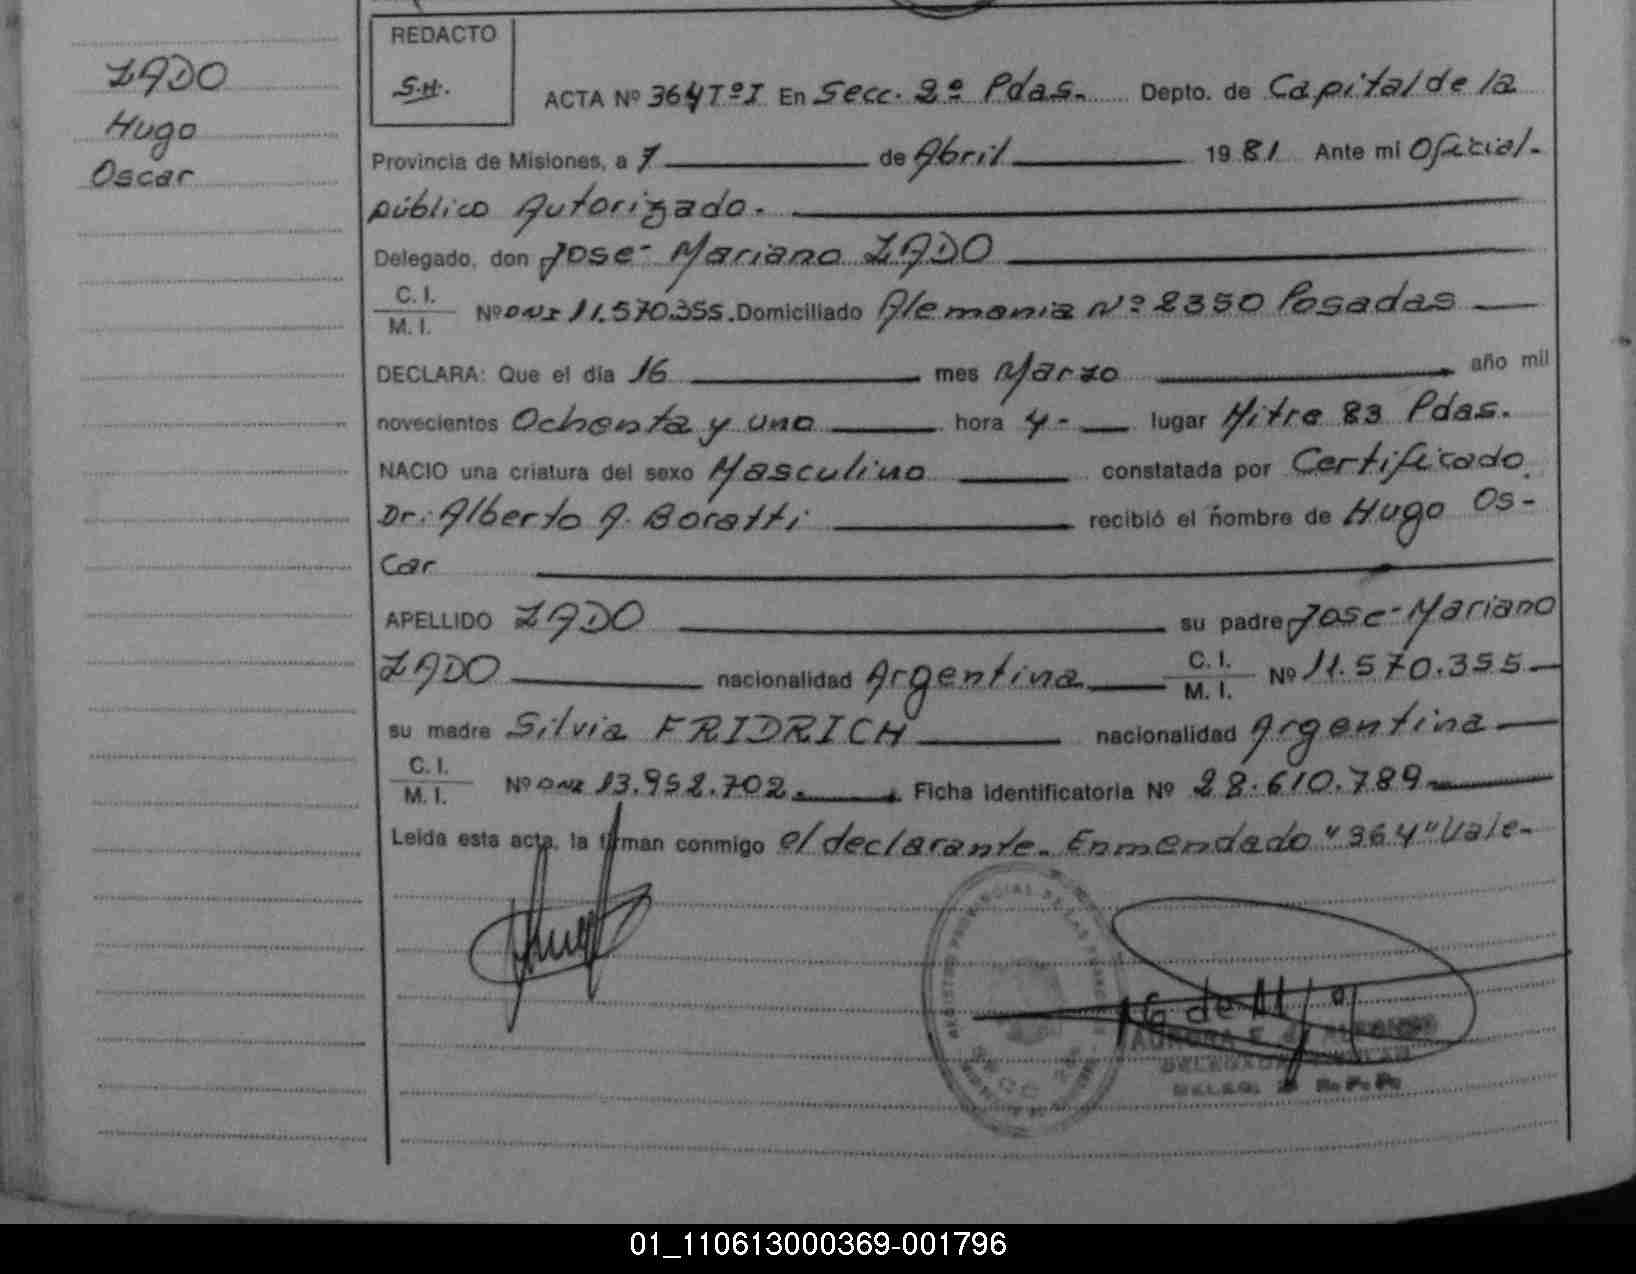 ZADO
Hugo
Oscar
REDACTO
S.H.
ACTA Nº 364 Tº I En Secc. 2º Pdas. Depto. de Capital de la
Provincia de Misiones, a 7 de Abril 1981 Ante mi Oficial.
público Autorizado.
Delegado, don Jose Mariano ZADO
C. I.
M. I.
Nº DNI 11.570.355. Domiciliado Alemania Nº 2350 Posadas
DECLARA: Que el día 16 mes Marzo año mil
novecientos Ochenta y uno hora 4- lugar Mitre 83 Pdas.
NACIO una criatura del sexo Masculino constatada por Certificado
Dr. Alberto A. Boratti recibió el nombre de Hugo Os-
car
APELLIDO ZADO su padre Jose Mariano
ZADO nacionalidad Argentina C. I. M. I. Nº 11.570.355
su madre Silvia FRIDRICH nacionalidad Argentina
C. I.
M. I.
Nº DNI 13.952.702. Ficha Identificatoria Nº 28.610.789
Leída esta acta, la firman conmigo el declarante. Enmendado "364" Vale-
REGISTRO PROVINCIAL DE LAS PERSONAS
SECC 2ª
01_110613000369-001796